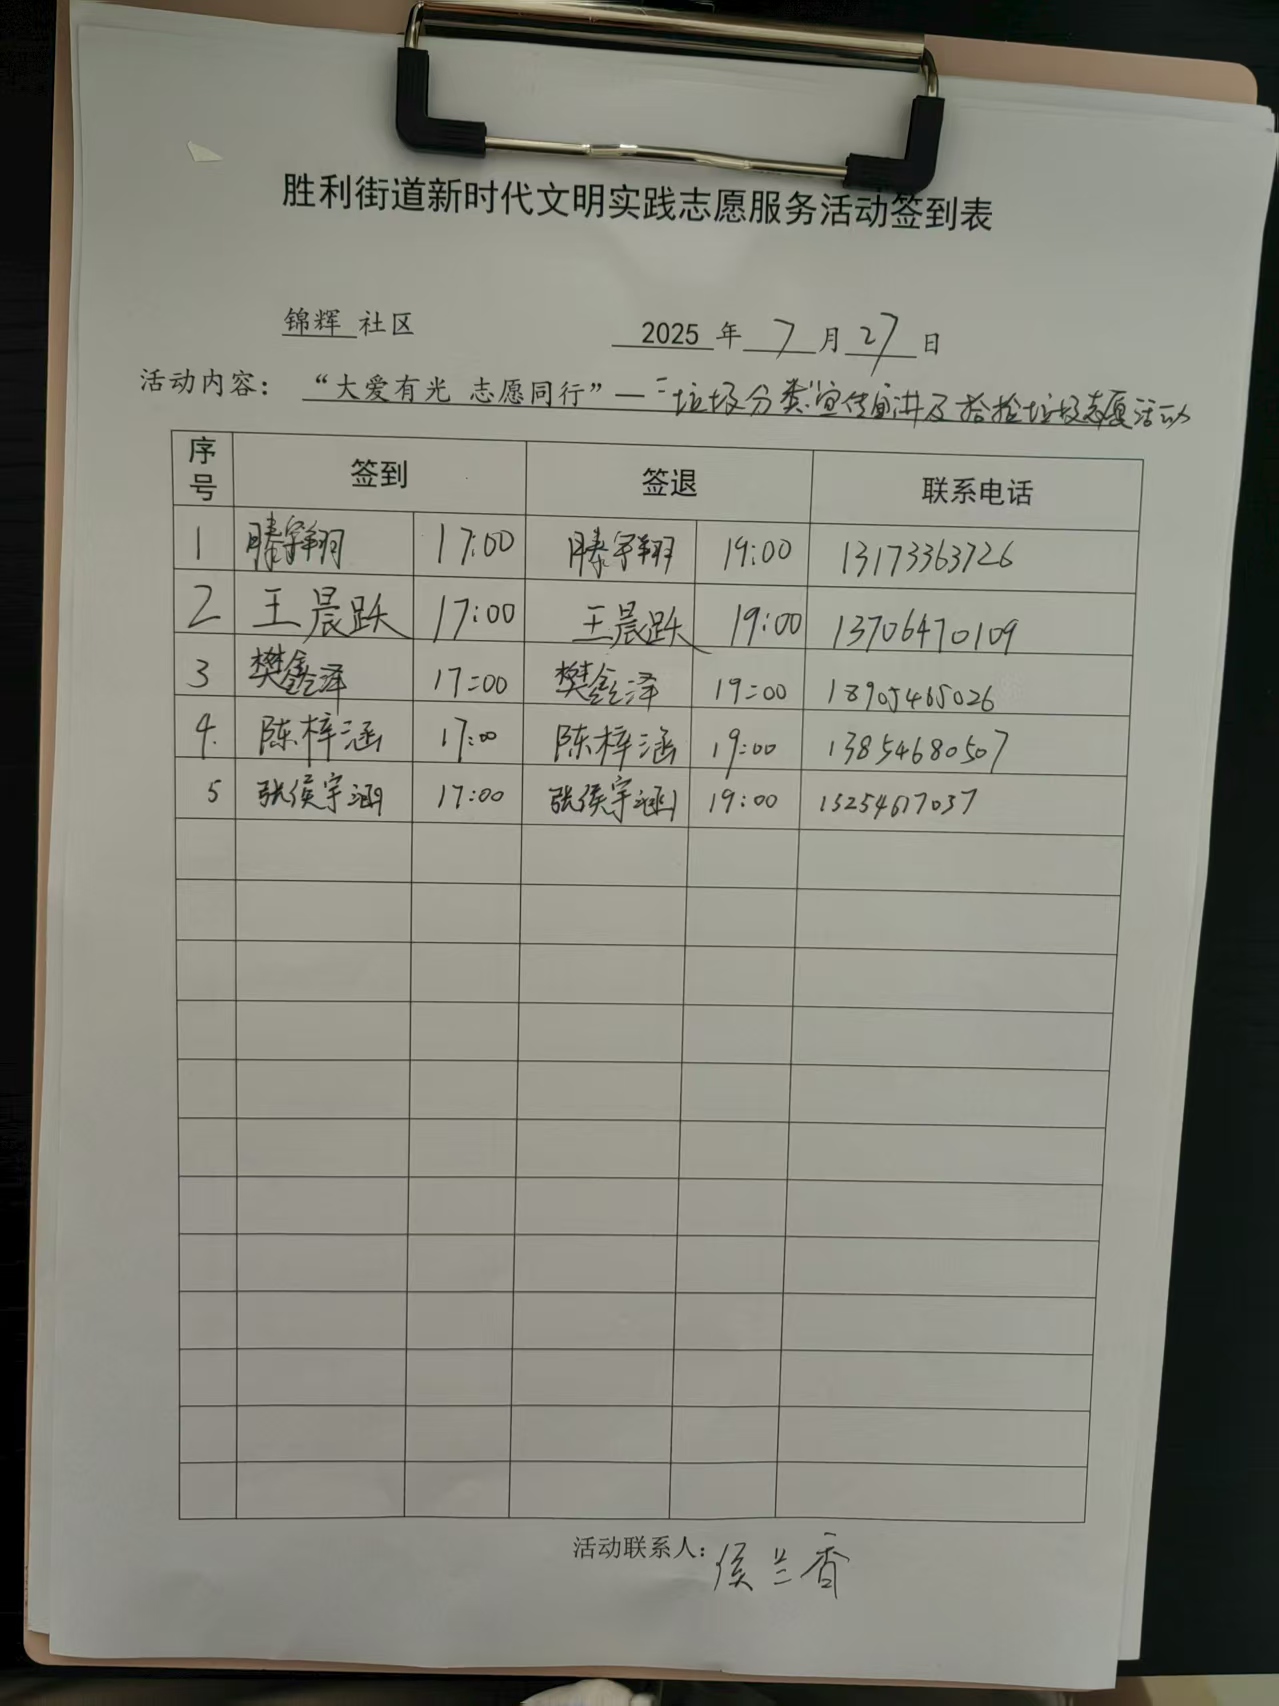 胜利街道新时代文明实践志愿服务活动签到表
锦辉 社区 2025 年 7 月 27 日
活动内容： “大爱有光 志愿同行”—“垃圾分类”宣传宣讲及捡捡垃圾志愿活动
序号 签到 签退 联系电话
1 滕宇翔 17:00 滕宇翔 19:00 13173363726
2 王晨跃 17:00 王晨跃 19:00 13706470109
3 樊鑫泽 17:00 樊鑫泽 19:00 18905465026
4. 陈梓涵 17:00 陈梓涵 19:00 13854680507
5 张侯宇涵 17:00 张侯宇涵 19:00 15254617037
活动联系人：侯兰香